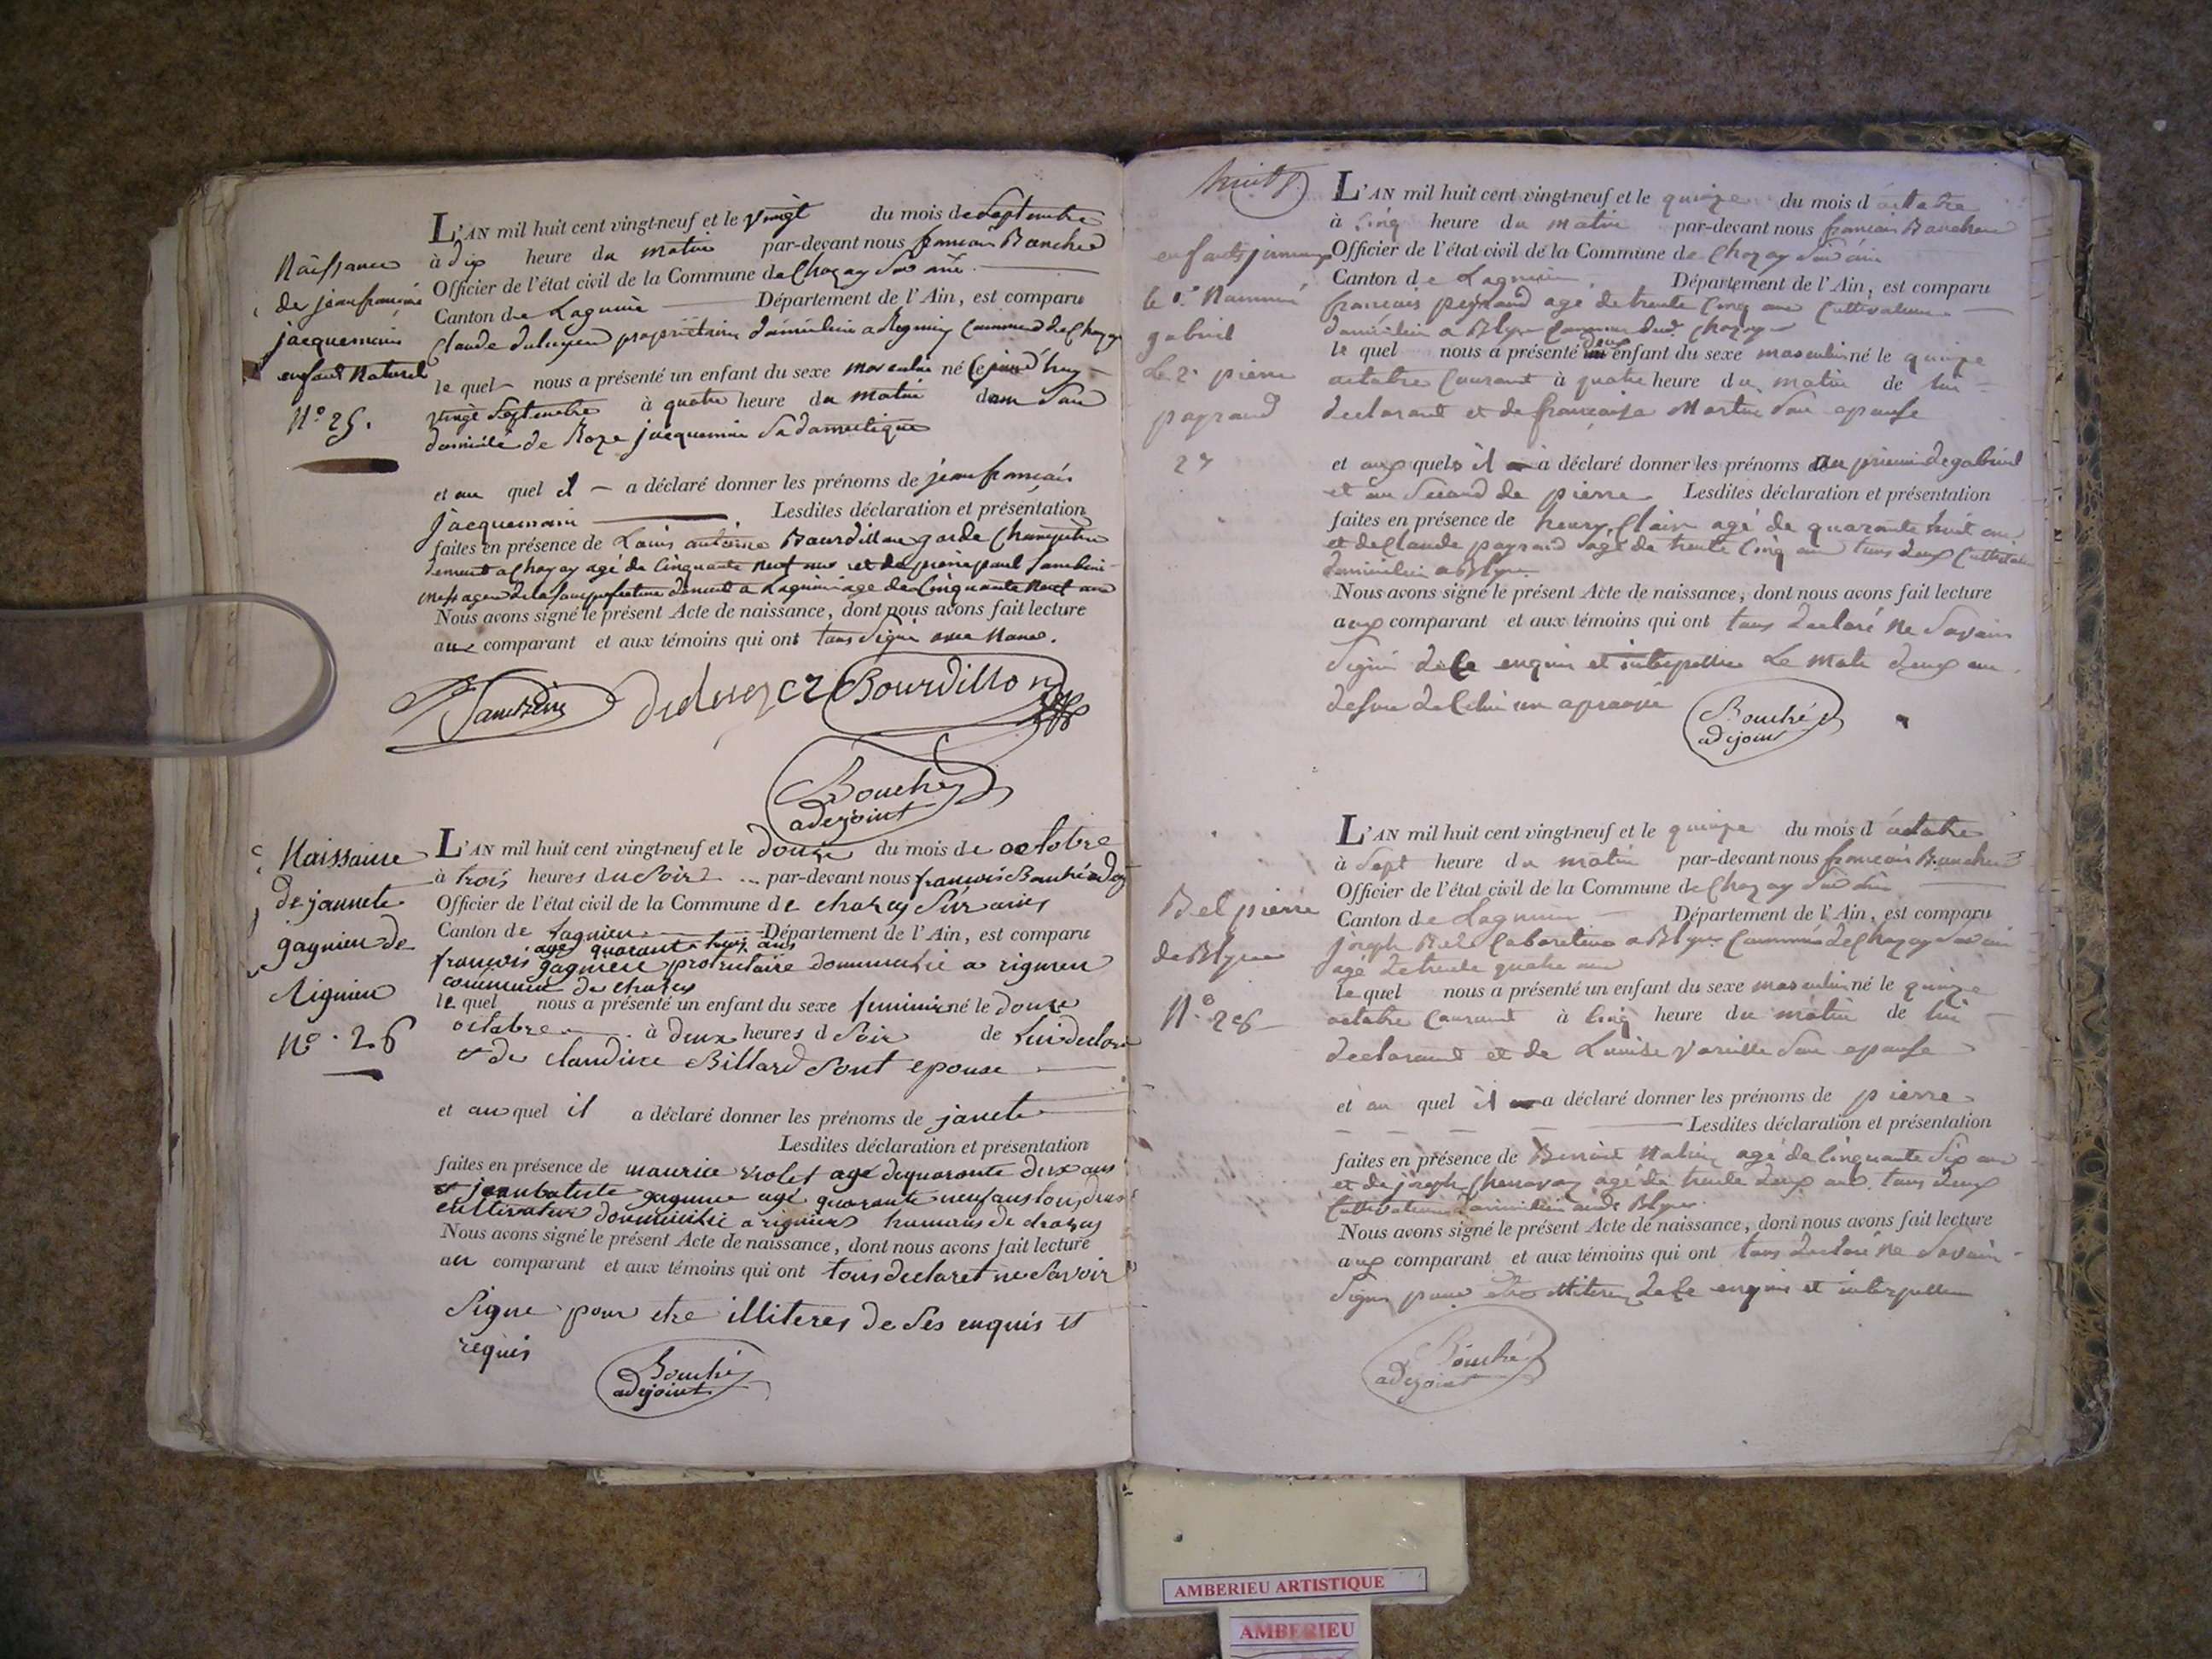 Naissance
de jean françois
jacquemain
enfant Naturel
N° 25.
L'AN mil huit cent vingt-neuf et le vingt du mois de Septembre
à dix heure du matin par-devant nous françois Bouché
Officier de l'état civil de la Commune de Chazay Sur ain
Canton de Lagnieu Département de l'Ain, est comparu
Claude propriétaire a Commune de Chazay
le quel nous a présenté un enfant du sexe masculin né ce jourd'huy
vingt Septembre à quatre heure du matin dans Son
domicile de Roze jacquemain Sa domestique
et au quel il a déclaré donner les prénoms de jean françois
jacquemain Lesdites déclaration et présentation
faites en présence de Louis antoine Bourdillon garde Champetre
a Chazay agé de Cinquante neuf ans et de pierre paul
messager de la Souspréfecture a Lagnieu agé de Cinquante neuf ans
Nous avons signé le présent Acte de naissance, dont nous avons fait lecture
aux comparant et aux témoins qui ont tous Signé avec Nous.
Bourdillon
Bouché
adejoint
Naissance
de jannete
gagnieu de
Rignieu
N° 26
L'AN mil huit cent vingt-neuf et le douze du mois de octobre
à trois heures du Soir par-devant nous francois Bouché
Officier de l'état civil de la Commune de chazey Sur
Canton de Lagnieu Département de l'Ain, est comparu
age quarant ans
francois gagniere protrietaire a rignieu
commune de chazey
le quel nous a présenté un enfant du sexe feminin né le douze
octobre à deux heures d Soir de Lui declarant
et de claudine Billard Sont epouse
et au quel il a déclaré donner les prénoms de janete
Lesdites déclaration et présentation
faites en présence de maurice violet agé de quarante deux ans
et jean batiste agé quarante neuf ans tous deux
cultivateur a rignieu de chazey
Nous avons signé le présent Acte de naissance, dont nous avons fait lecture
au comparant et aux témoins qui ont tous declaret ne Savoir
Signe pour etre illiteres de Ses enquis et
requis
Bouché
adejoint
huit
enfants jumeaux
le 1er Nommé
gabriel
Le 2e pierre
payrand
27
L'AN mil huit cent vingt-neuf et le quinze du mois d'octobre
à Cinq heure du matin par-devant nous françois Bouché
Officier de l'état civil de la Commune de Chazay Sur ain
Canton de Lagnieu Département de l'Ain, est comparu
françois payrand agé de trente Cinq ans Cultivateur
a Blye Commune dud. Chazay
le quel nous a présenté deux enfant du sexe masculin né le quinze
octobre Courant à quatre heure du matin de lui
declarant et de françoise Martin Son epouse
et aux quels il a déclaré donner les prénoms au premier de gabriel
et au Second de pierre Lesdites déclaration et présentation
faites en présence de henry Clair agé de quarante huit ans
et de Claude payrand agé de trente Cinq ans tous deux
a Blye
Nous avons signé le présent Acte de naissance, dont nous avons fait lecture
aux comparant et aux témoins qui ont tous declaré ne Savoir
Signé de Ce enquis et interpellés Le mots deux au
desus de Celui un aprouvé
Bouché
adejoint
Bel pierre
de Blye
N° 28
L'AN mil huit cent vingt-neuf et le quinze du mois d'octobre
à Sept heure du matin par-devant nous françois Bouché
Officier de l'état civil de la Commune de Chazay Sur ain
Canton de Lagnieu Département de l'Ain, est comparu
joseph Bel Cabaretier a Blye Commune de Chazay Sur ain
agé de trente quatre ans
le quel nous a présenté un enfant du sexe masculin né le quinze
octobre Courant à Cinq heure du matin de lui
declarant et de Louise Son epouse
et au quel il a déclaré donner les prénoms de pierre
Lesdites déclaration et présentation
faites en présence de Benoit agé de Cinquante Six ans
et de joseph agé de trente deux ans tous deux
Cultivateurs Blye
Nous avons signé le présent Acte de naissance, dont nous avons fait lecture
aux comparant et aux témoins qui ont tous declaré ne Savoir
Signé pour etre de Ce enquis et interpellés
Bouché
adejoint
AMBERIEU ARTISTIQUE
AMBERIEU